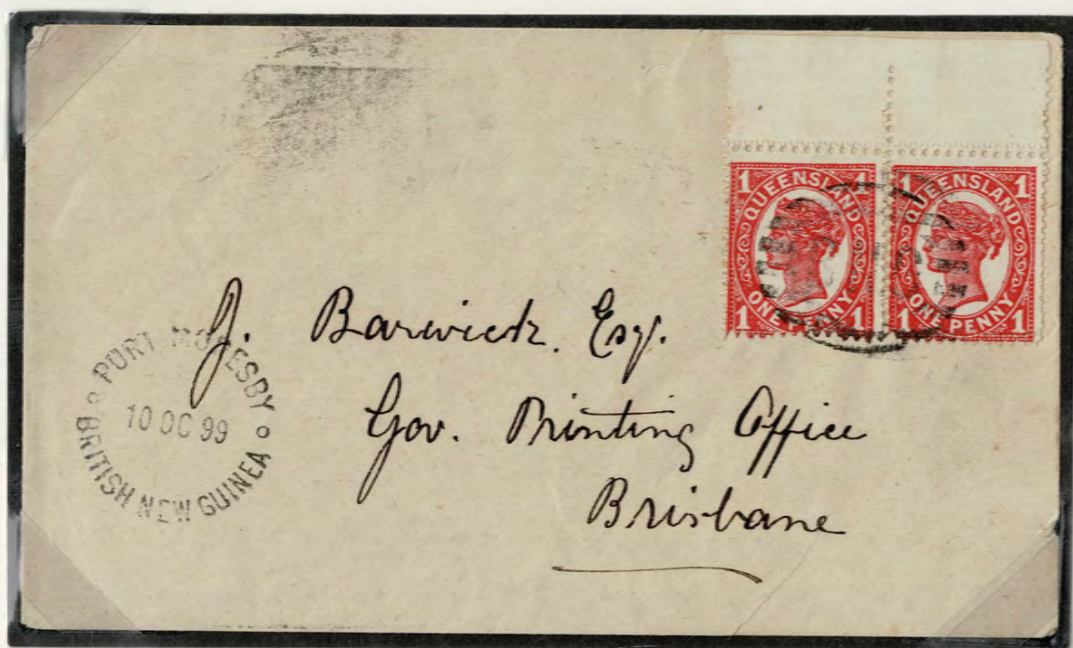 1 QUEENSLAND 1
ONE PENNY
1 1
1 QUEENSLAND 1
ONE PENNY
1 1
J. Barwick. Esq.
Gov. Printing Office
Brisbane
PORT MORESBY
10 OC 99
BRITISH NEW GUINEA